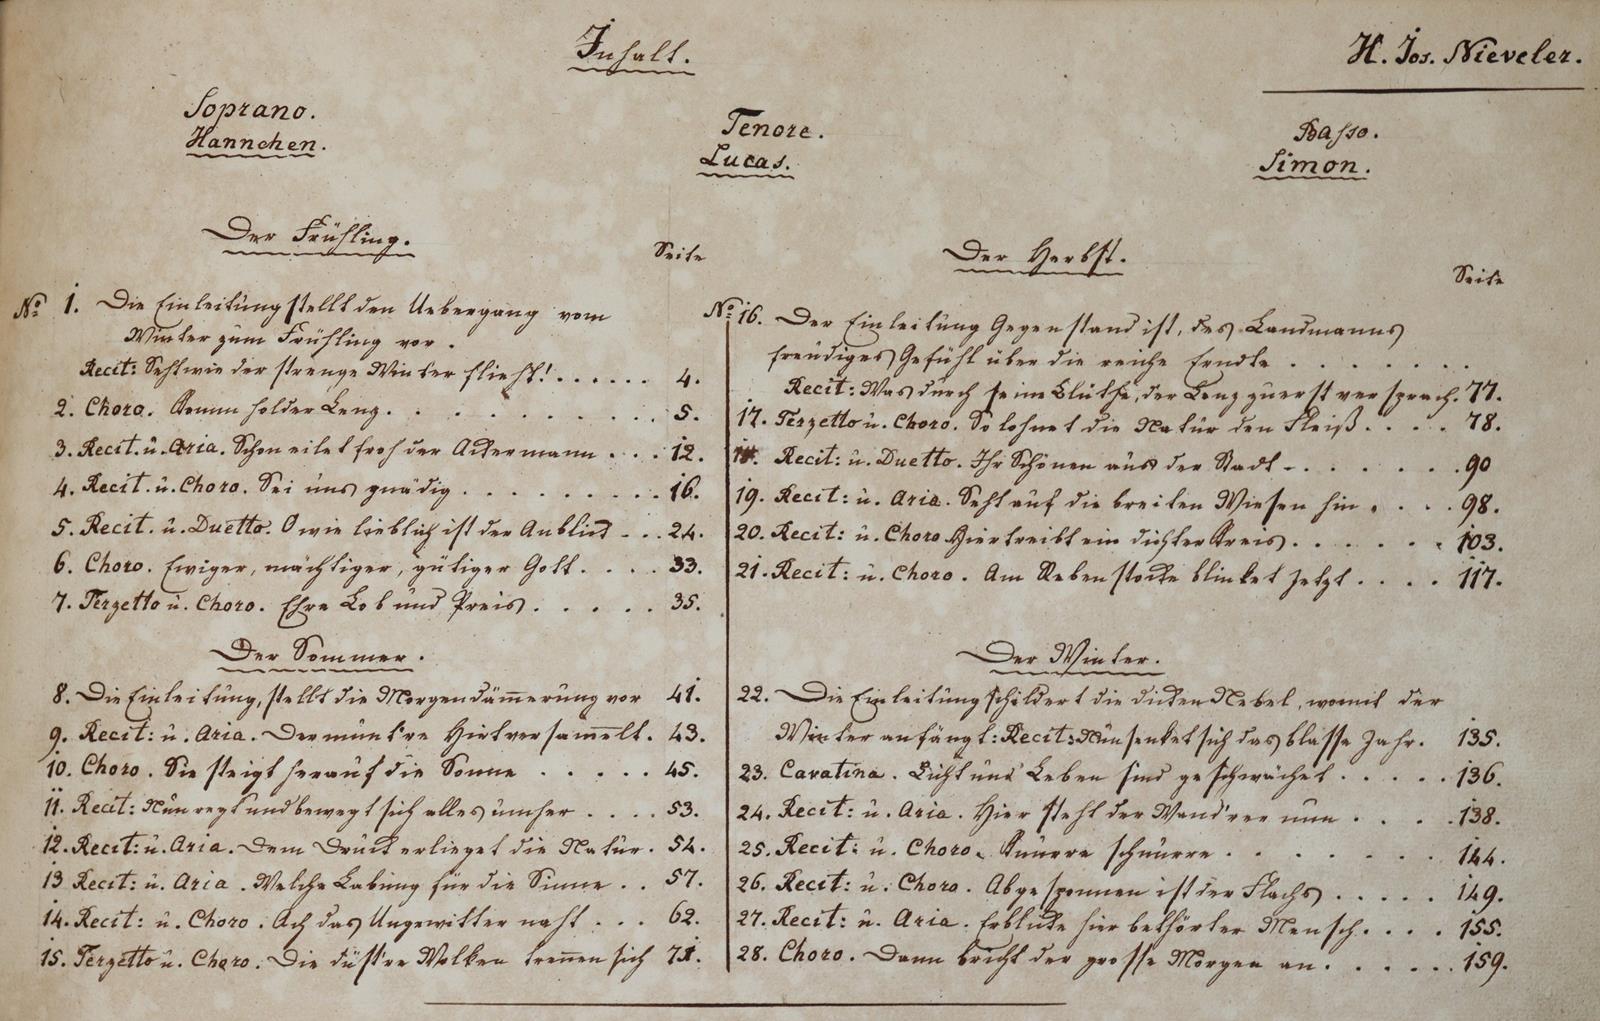 Inhalt.
H. Jos. Nieveler.
Soprano.
Hannchen.
Tenore.
Lucas.
Basso.
Simon.
Der Frühling.
Seite
No 1. Die Einleitung stellt den Uebergang vom
Winter zum Frühling vor.
Recit: Seht wie der strenge Winter flieht! . . . . . . 4.
2. Choro. Komm holder Lenz. . . . . . . . . . 5.
3. Recit. u. Aria. Schon eilet froh der Ackermann . . . 12.
4. Recit. u. Choro. Sei uns gnädig . . . . . . . . . 16.
5. Recit. u. Duetto. O wie lieblich ist der Anblick . . . 24.
6. Choro. Ewiger, mächtiger, gütiger Gott. . . . . 33.
7. Terzetto u. Choro. Ehre Lob und Preis . . . . . 35.
Der Sommer.
8. Die Einleitung, stellt die Morgendäm̅erung vor 41.
9. Recit: u. Aria. Der munt're Hirt versam̅elt. 43.
10. Choro. Sie steigt herauf die Sonne . . . . . 45.
11. Recit: Nun regt und bewegt sich alles umher . . . . 53.
12. Recit: u. Aria. Dem Druck erlieget die Natur. 54.
13 Recit: u. Aria. Welche Labung für die Sinne . . 57.
14. Recit: u. Choro. Ach das Ungewitter naht . . . 62.
15. Terzetto u. Choro. Die düst're Wolken tren̅en sich 71.
Der Herbst.
Seite
No 16. Der Einleitung Gegenstand ist, des Landmanns
freudiges Gefühl über die reiche Erndte . . . . . . .
Recit: Was durch seine Blüthe, der Lenz zuerst versprach. 77.
17. Terzetto u. Choro. So lohnet die Natur den Fleiß . . . . 78.
18. Recit: u. Duetto. Ihr Schönen aus der Stadt . . . . . . . 90
19. Recit: u. Aria. Seht auf die breiten Wiesen hin . . . . 98.
20. Recit: u. Choro Hier treibt ein dichter Kreis . . . . . . 103.
21. Recit: u. Choro. Am Rebenstocke blinket jetzt . . . . 117.
Der Winter.
22. Die Einleitung schildert die dicken Nebel, womit der
Winter anfängt: Recit: Nun senket sich das blasse Jahr. 135.
23. Cavatina. Licht und Leben sind geschwächet . . . . . 136.
24. Recit: u. Aria. Hier steht der Wand'rer nun . . . . . 138.
25. Recit: u. Choro. Knurre schnurre . . . . . . . 144.
26. Recit: u. Choro. Abgesponnen ist der Flachs . . . . . 149.
27. Recit: u. Aria. Erblicke hier bethörter Mensch. . . . . 155.
28. Choro. Dann bricht der grosse Morgen an. . . . . . . 159.